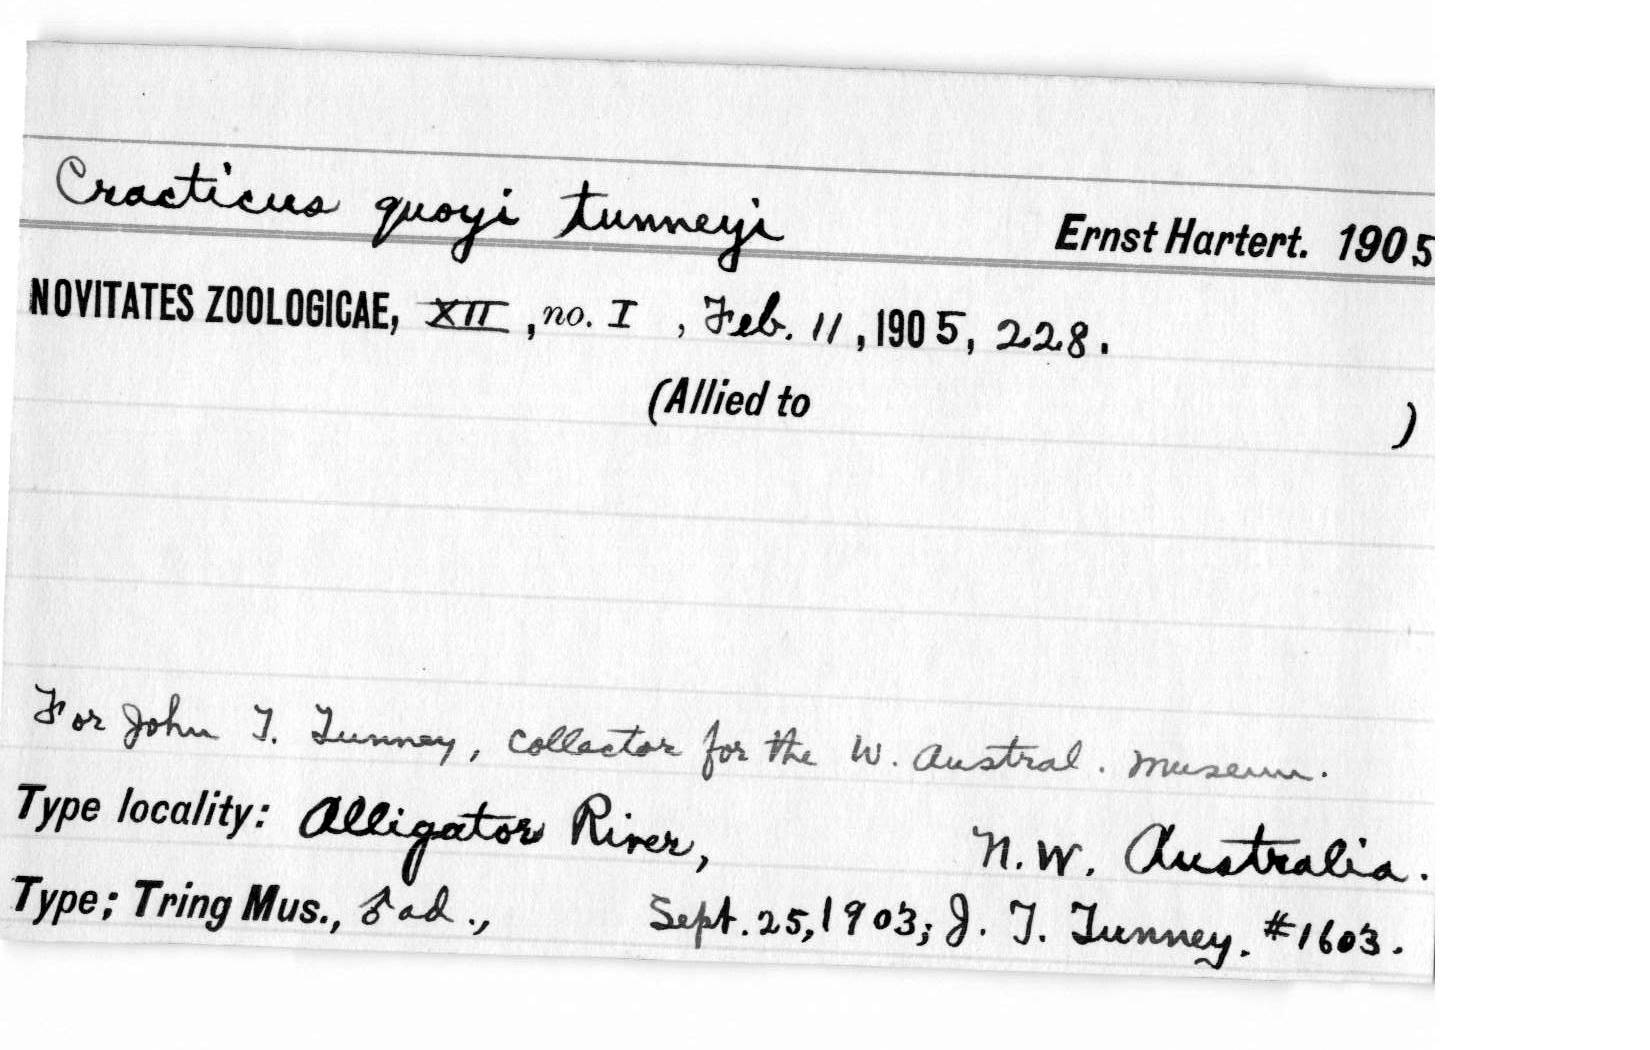 Cracticus quoyi tunneyi Ernst Hartert. 1905
NOVITATES ZOOLOGICAE, XII, no. I, Feb. 11, 1905, 228.
(Allied to )
For John T. Tunney, collector for the W. Austral. Museum.
Type locality: Alligator River, N.W. Australia.
Type; Tring Mus., ♂ ad., Sept. 25, 1903; J. T. Tunney. #1603.